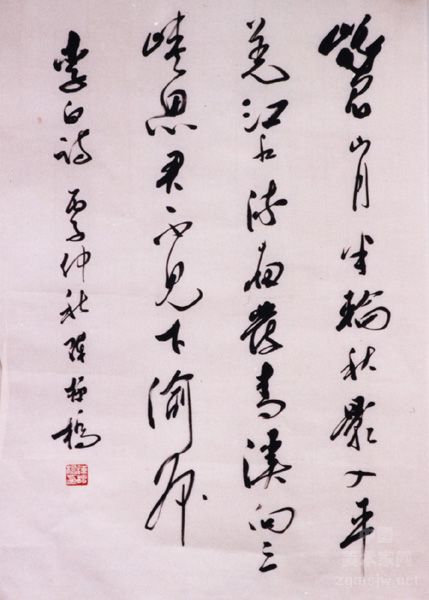 峨眉山月半輪秋影入平
羌江水流夜發青溪向三
峽思君不見下渝州
李白詩 丙子仲秋陳
美术家网